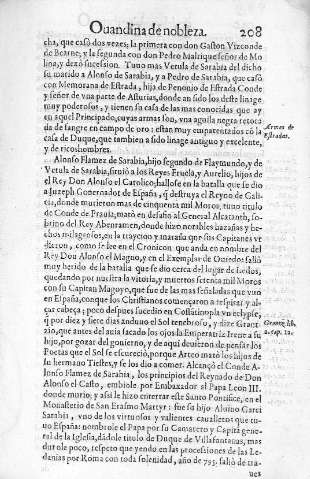 Ouandina de nobleza. 208
cha, que casò dos vezes; la primera con don Gaston Vizconde
de Bearne; y la segunda con don Pedro Malrique señor de Mo
lina, y dexò sucession. Tuuo mas Vetula de Sarabia del dicho
su marido a Alonso de Sarabia, y a Pedro de Sarabia, que casó
con Memorana de Estrada, hija de Penonio de Estrada Conde
y señor de vna parte de Asturias, donde an sido los deste linage
muy poderosos, y tienen su casa de las mas conocidas que ay
en aquel Principado, cuyas armas son, vna aguila negra rotoca
da de sangre en campo de oro: estan muy emparentados cõ la
casa de Duque, que tambien a sido linage antiguo y excelente,
y de ricoshombres.
Armas de
Estradas.
Alonso Flamez de Sarabia, hijo segundo de Flaymundo, y de
Vetula de Sarabia, siruiò a los Reyes Fruela, y Aurelio, hijos de
el Rey Don Alonso el Catolico; hallose en la batalla que se dio
a Juzeph Gouernador de España, q̃ destruya el Reyno de Gali-
cia, donde murieron mas de cinquenta mil Moros: tuuo titulo
de Conde de Fraula, matò en desafio al General
brino del Rey Abenramen, donde hizo notables hazañas y he-
chos milagrosos, en la traycion y maraña que sus Capitanes vr
dieron, como se lee en el Cronicon que anda en nombre del
Rey Don Alonso el Magno, y en el Exemplar de Ouiedo: salió
muy herido de la batalla que se dio cerca del lugar de Ledos,
quedando por nuestra la vitoria, y muertos setenta mil Moros
con su Capitan Mugayo, que fue de las mas señaladas que vuo
en España, conque los Christianos començaron a respirar y al-
çar cabeça; poco despues sucedio en Cõstãtinopla vn eclypse,
q̃ por diez y siete dias anduuo el Sol tenebroso, y dize Graci
zio, que antes del auia sacado los ojos la Emperatriz Irene a su
hijo, por gozar del gouierno, y de aqui deuieron de pensar los
Poetas que el Sol se escureciò, porque Atreo matò los hijos de
su hermano Tiestes, y se los dio a comer. Alcançò el Conde A-
lonso Flamez de Sarabia, los principios del Reynado de Don
Alonso el Casto, embiole por Embaxador al Papa Leon III.
donde murio; y assi le hizo enterrar este Santo Pontifice, en el
Monasterio de San Erasmo Martyr: fue su hijo Aluino Garci
Sarabia, vno de los virtuosos y valientes caualleros que tu-
uo España: nombrole el Papa por su Camarero y Capitã gene-
ral de la Iglesia, dàdole titulo de Duque de Villafantanas, mas
durole poco, respeto que yendo en las processiones de las Le-
danias por Roma con toda solenidad, año de 795. saliò de tra-
ues
lib.
2. cap. 12.